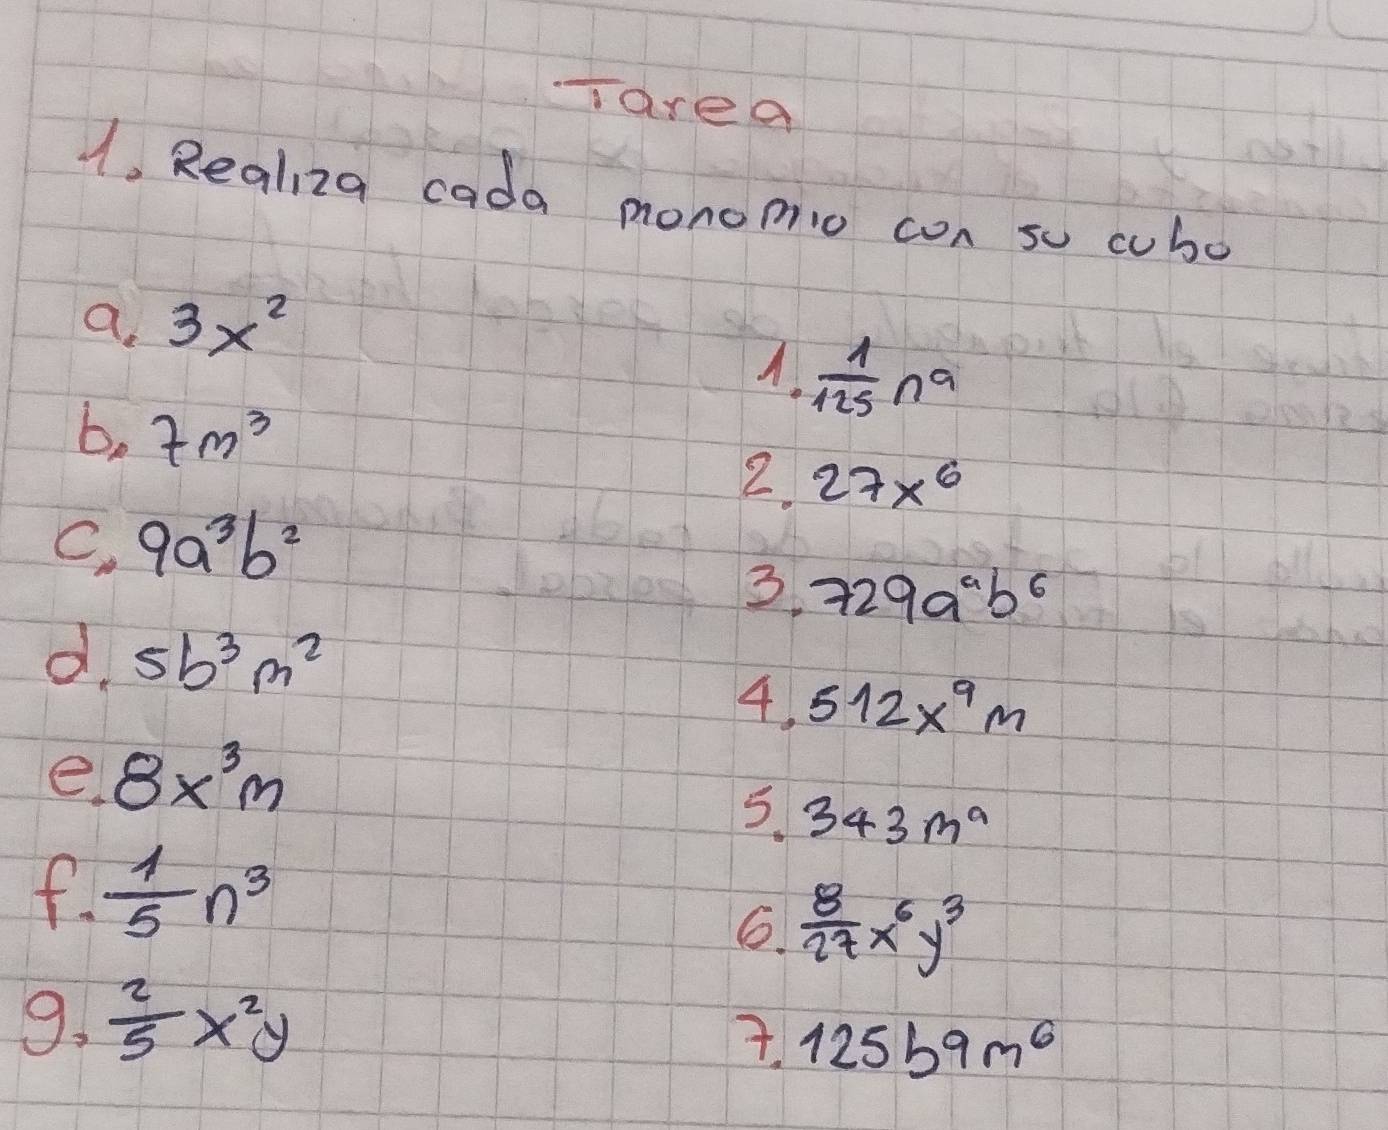 Tarea
1. Realiza cada monomio con su cubo
a. 3x²
1. 1/125 n⁹
b. 7m³
2. 27x⁶
c. 9a³b²
3. 729a⁹b⁶
d. 5b³m²
4. 512x⁹m
e. 8x³m
5. 343m⁹
f. 1/5 n³
6. 8/27 x⁶y³
g. 2/5 x²y
7. 125b9m⁶